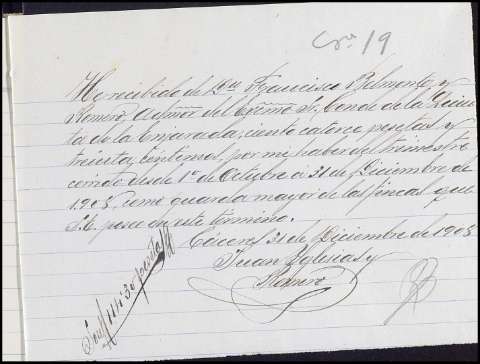 Nº 19
He recibido de Don Francisco Belmonte y
Romero Admor del Excmo Sr. Conde de la Quin
ta de la Enjarada, ciento catorce pesetas y
treinta centimos, por mi haber del trimestre
corrido desde 1º de Octubre a 31 de Diciembre de
1903, como guarda mayor de las fincas que
S.E. posee en este termino.
Cáceres 31 de Diciembre de 1903
Juan Iglesias y
Romero
Son 114'30 pesetas